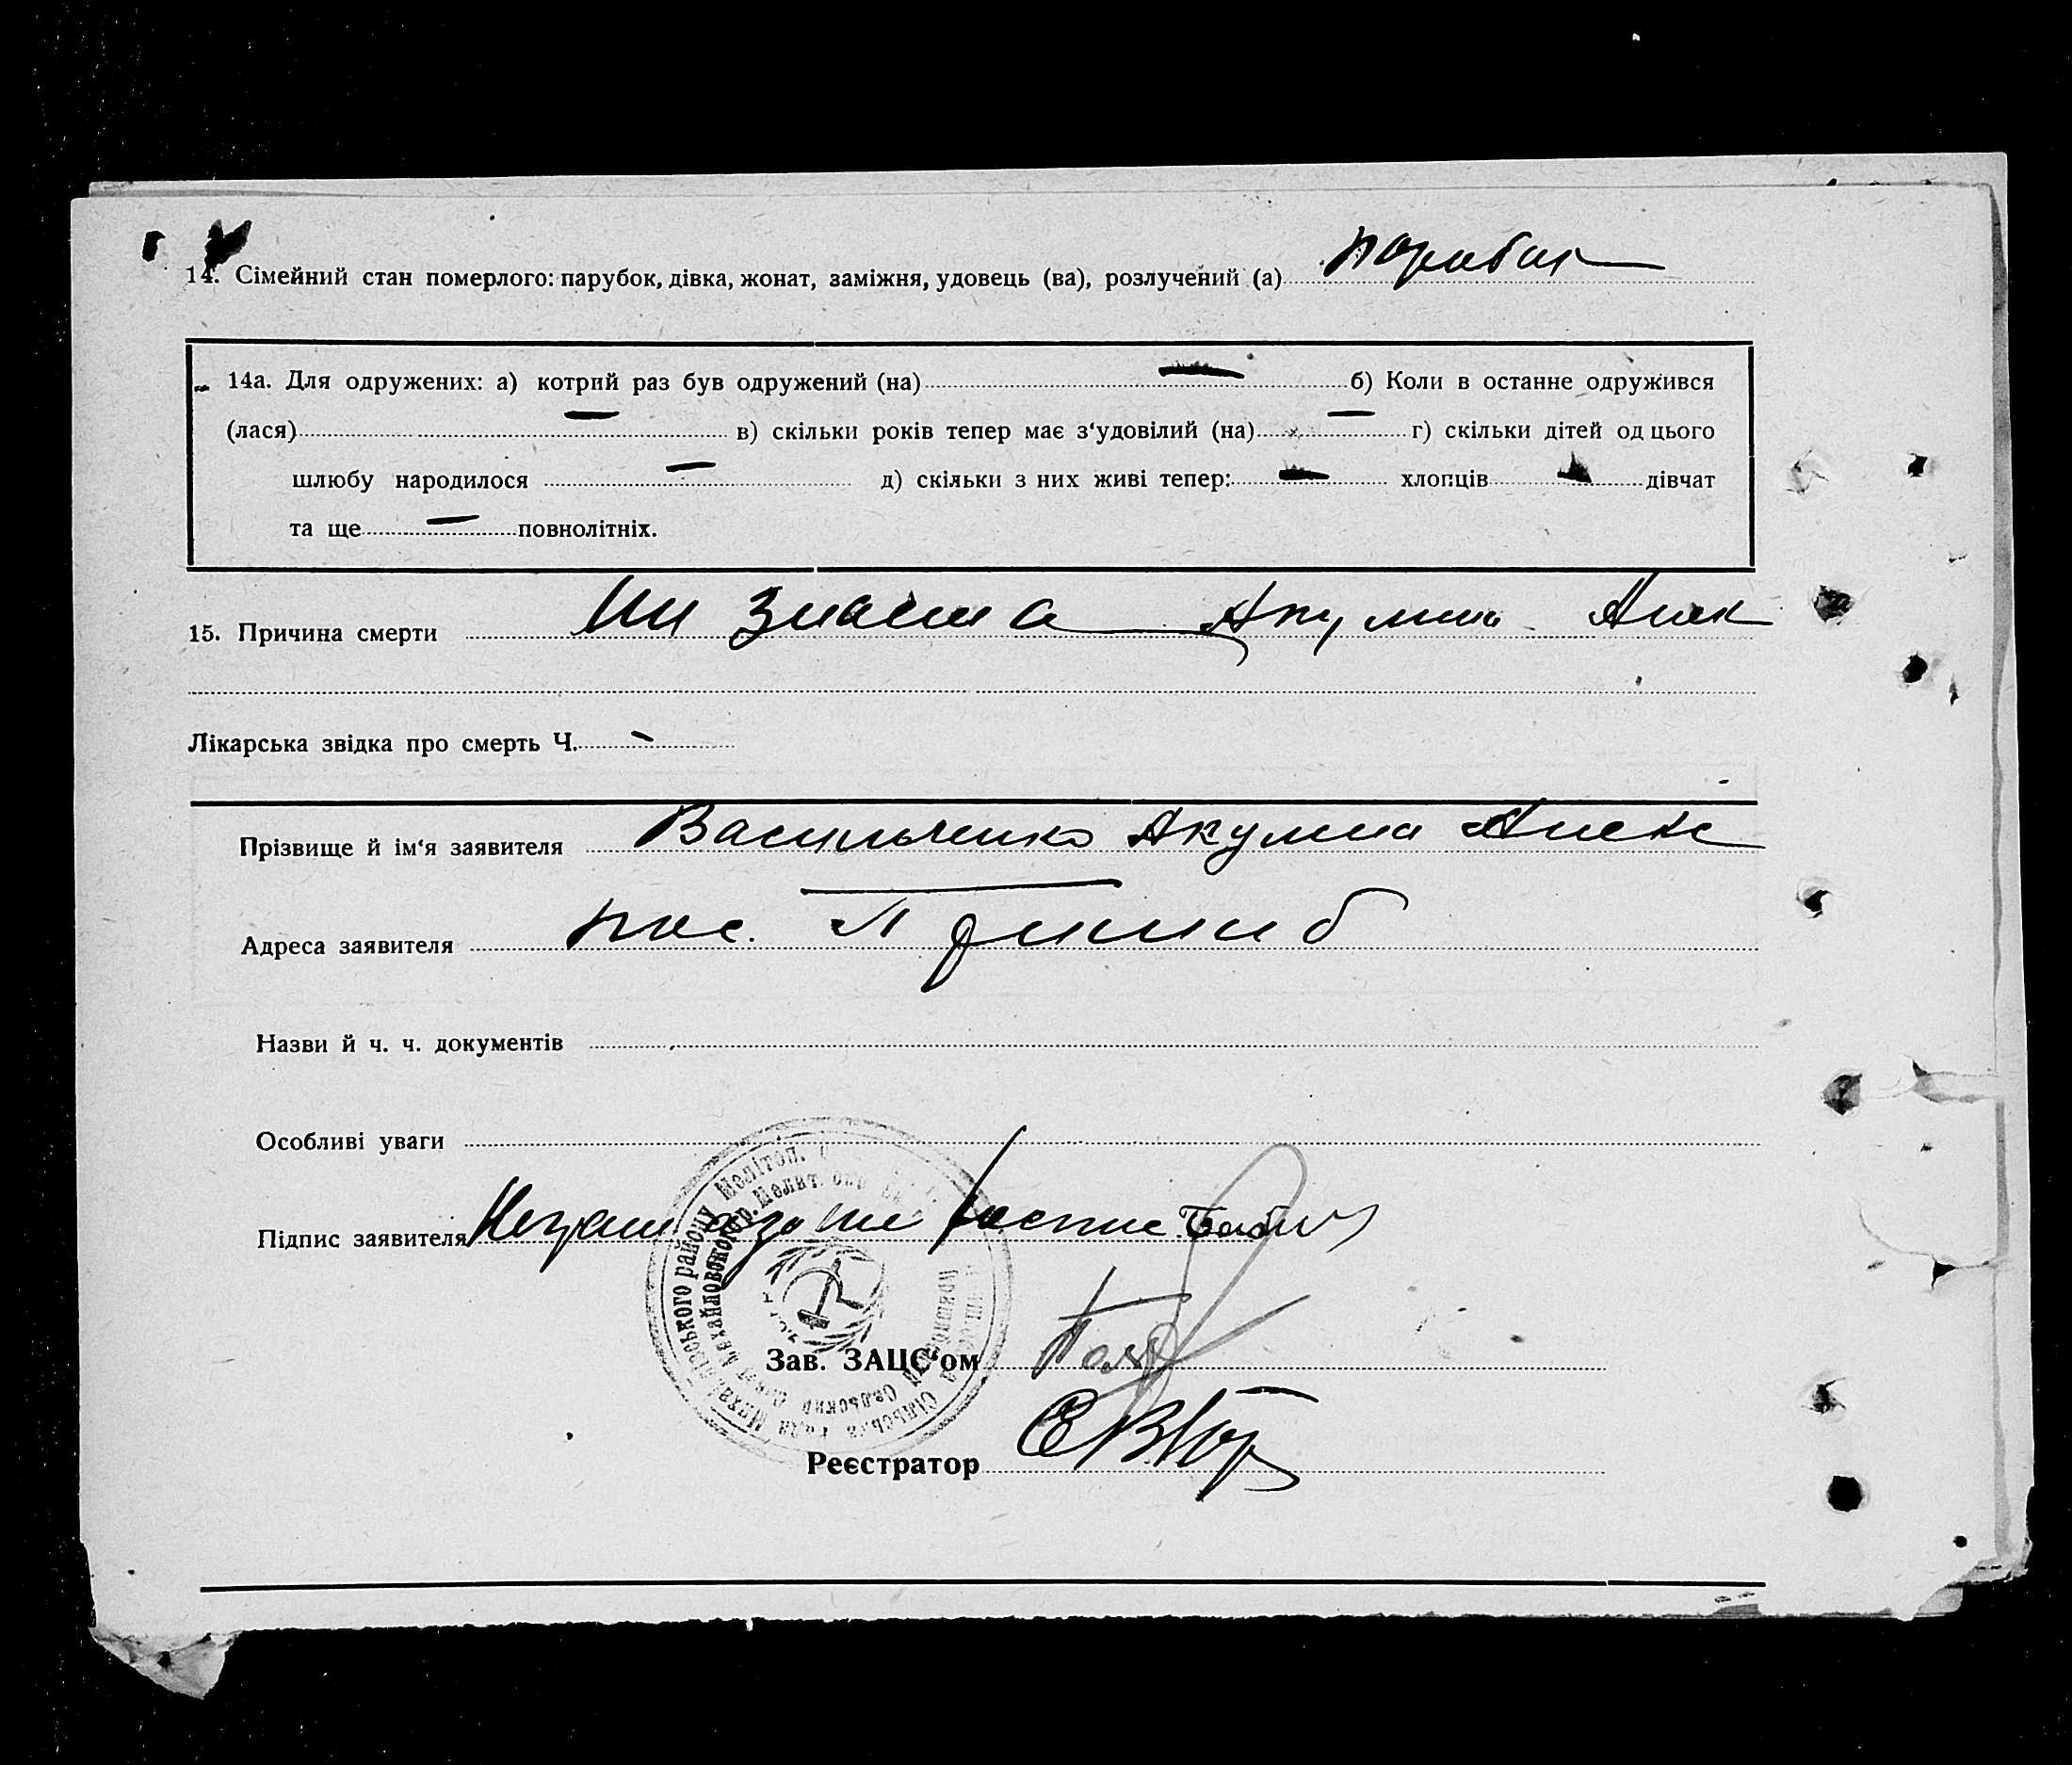 14. Сімейний стан померлого: парубок, дівка, жонат, заміжня, удовець (ва), розлучений (а) парубок
14а. Для одружених: а) котрий раз був одружений (на) — б) Коли в останне одружився
(лася) — в) скільки років тепер має з'удовілий (на) — г) скільки дітей од цього
шлюбу народилося — д) скільки з них живі тепер: — хлопців — дівчат
та ще — повнолітніх.
15. Причина смерти Ни Знаема Акумина Алек
Лікарська звідка про смерть Ч. —
Прізвище й ім'я заявителя Васильченко Акумина Алекс
Адреса заявителя пос. Пришиб
Назви й ч. ч. документів
Особливі уваги
Підпис заявителя Неграм
Зав. ЗАЦС'ом
Реєстратор